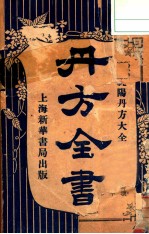 陽丹方大全
丹方全書
上海新華書局出版